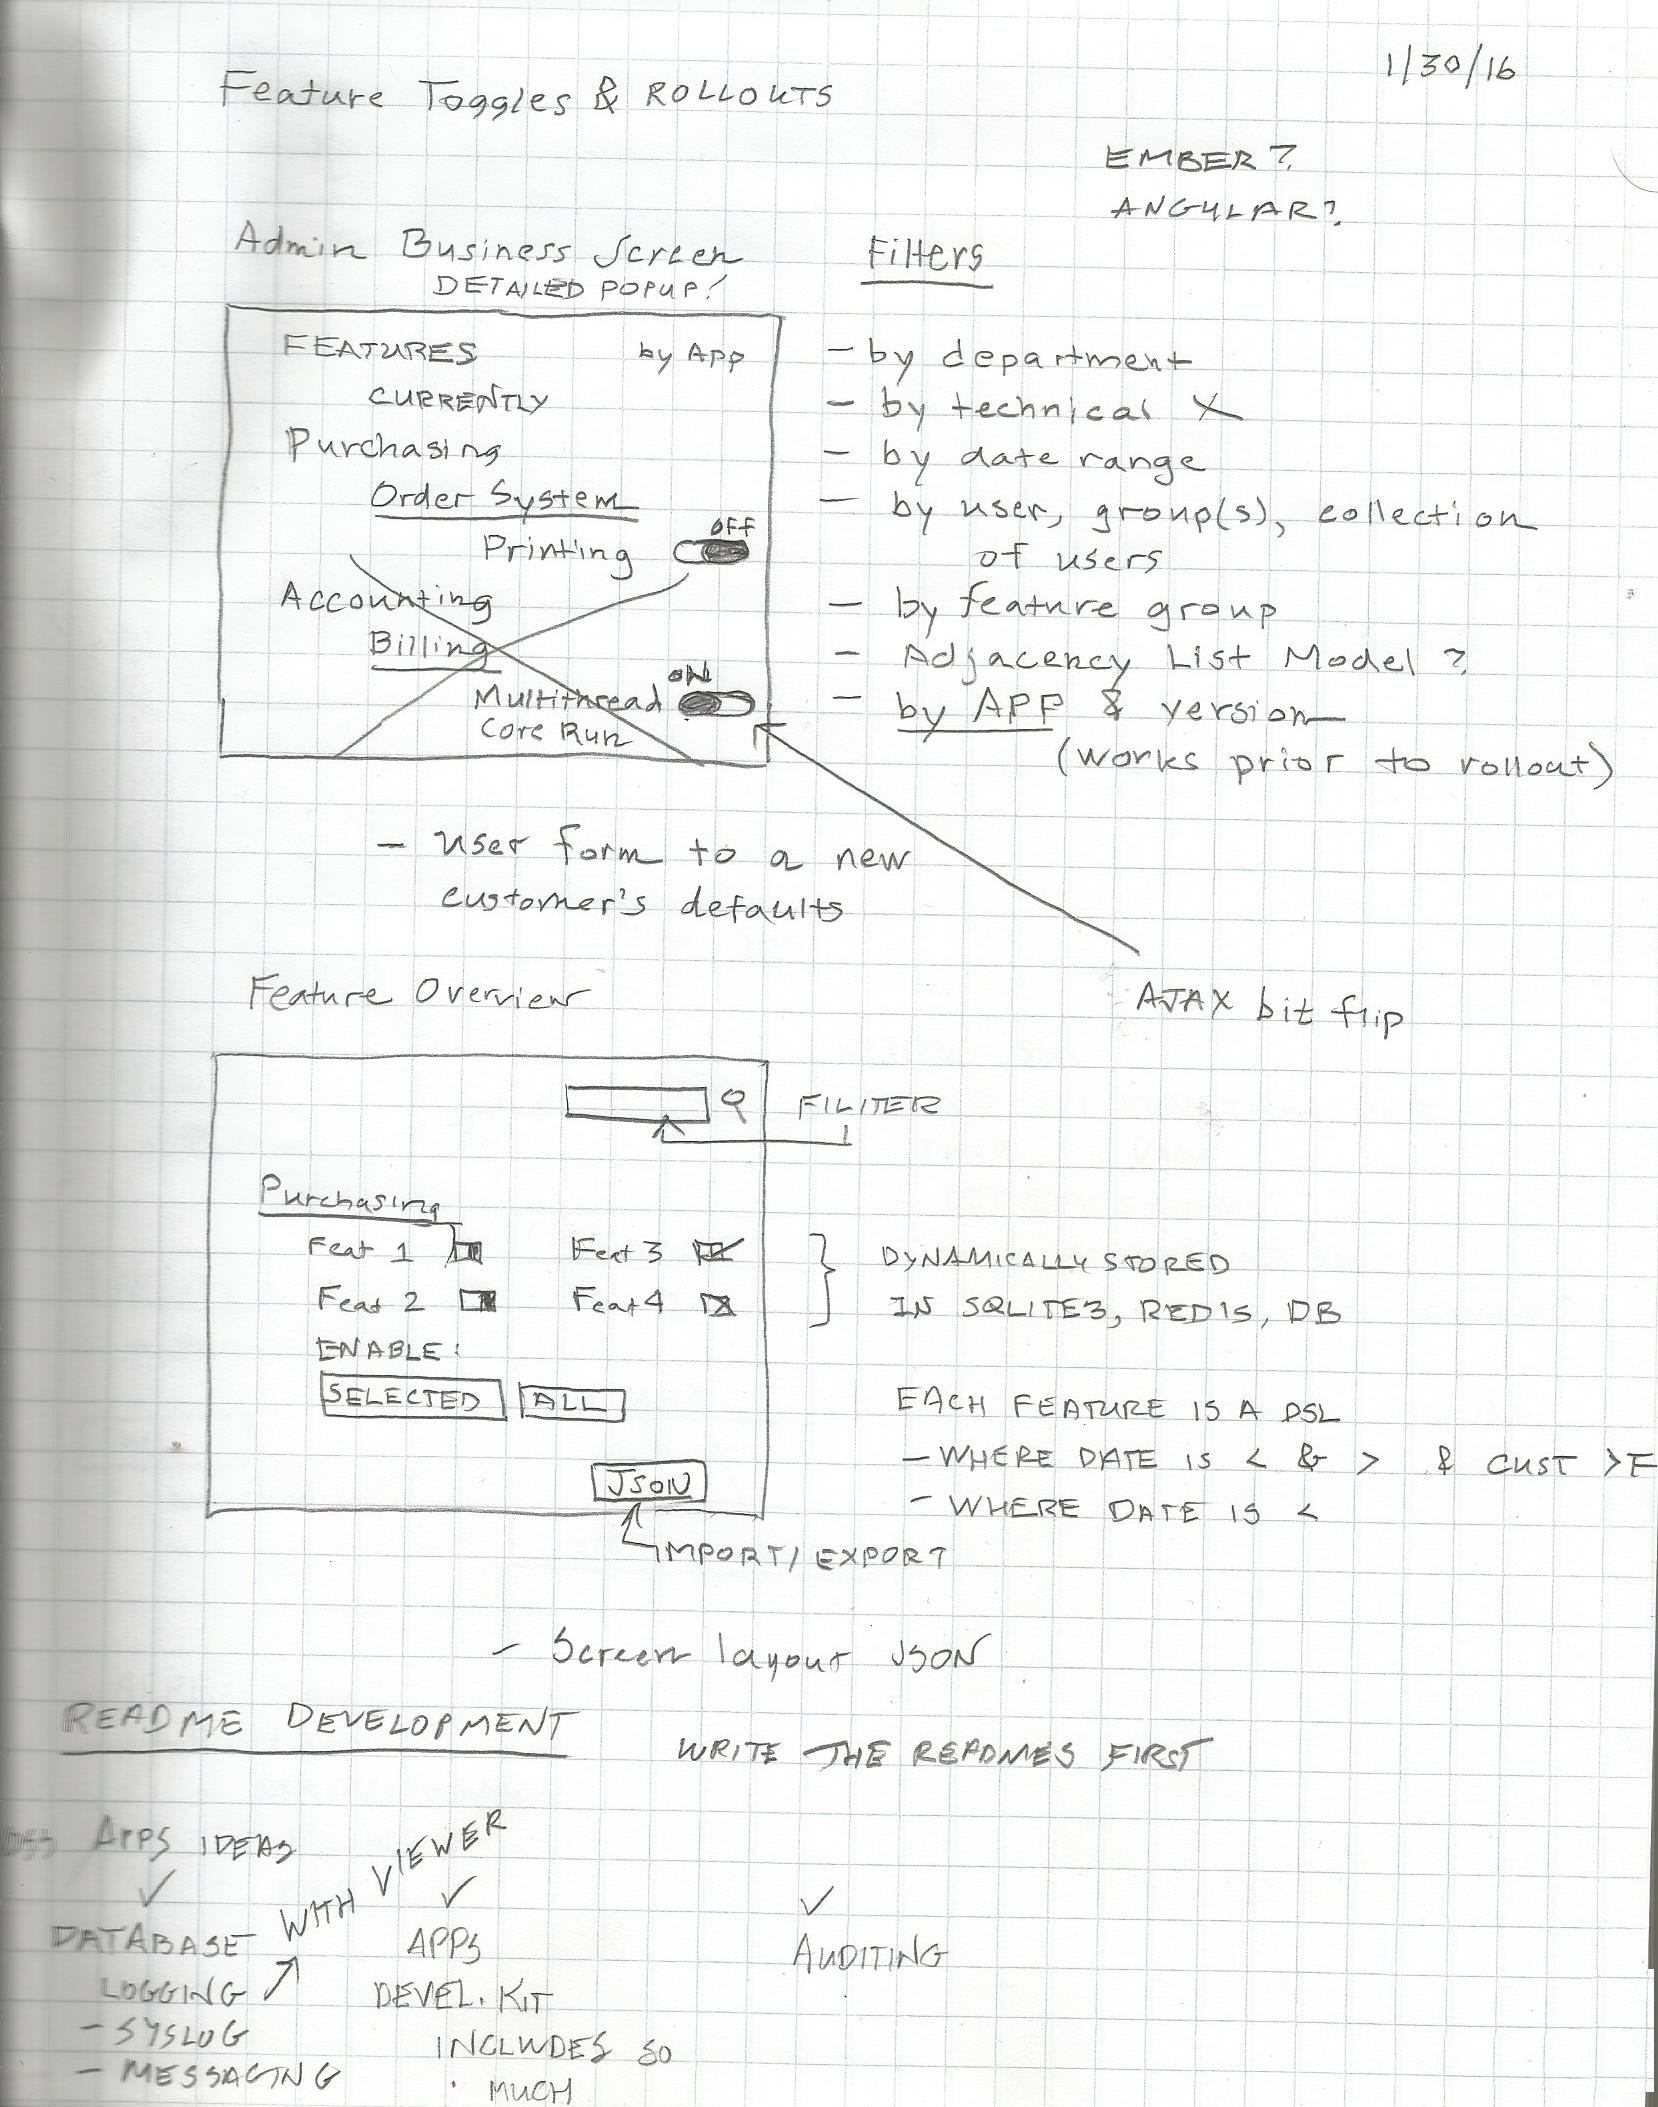 1/30/16
Feature Toggles & ROLLOUTS
EMBER?
ANGULAR?
Admin Business Screen
DETAILED POPUP!
FEATURES by App
CURRENTLY
Purchasing
Order System
OFF
Printing
Accounting
Billing
ON
Multithread
Core Run
Filters
- by department
- by technical X
- by date range
- by user, group(s), collection
of users
- by feature group
- Adjacency List Model ?
- by APP & version
(works prior to rollout)
- user form to a new
customer's defaults
AJAX bit flip
Feature Overview
FILITER
Purchasing
Feat 1 Feat 3
Feat 2 Feat 4
ENABLE:
SELECTED ALL
JSON
IMPORT/EXPORT
DYNAMICALLY STORED
IN SQLITE3, REDIS, DB
EACH FEATURE IS A DSL
- WHERE DATE IS < & > & CUST > F
- WHERE DATE IS <
- Screen layout JSON
README DEVELOPMENT
WRITE THE READMES FIRST
APPS IDEAS
✓
DATABASE
LOGGING
- SYSLOG
- MESSAGING
WITH VIEWER
✓
APPS
DEVEL. KIT
INCLUDES SO
MUCH
✓
AUDITING